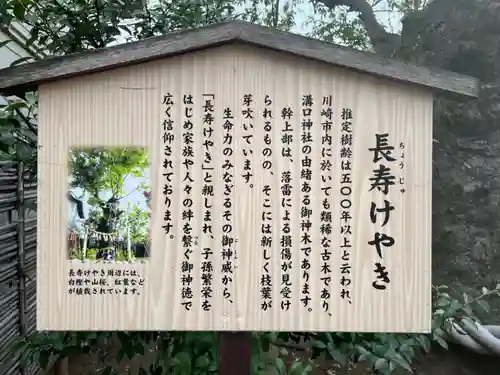 長寿けやき
ちょうじゅ
推定樹齢は五〇〇年以上と云われ、
川崎市内に於いても類稀な古木であり、
溝口神社の由緒ある御神木であります。
幹上部は、落雷による損傷が見受け
られるものの、そこには新しく枝葉が
芽吹いています。
生命力のみなぎるその御神威から、
「長寿けやき」と親しまれ、子孫繁栄を
はじめ家族や人々の絆を繋ぐ御神徳で
広く信仰されております。
長寿けやき周辺には、
白樫や山桜、紅葉など
が植栽されています。